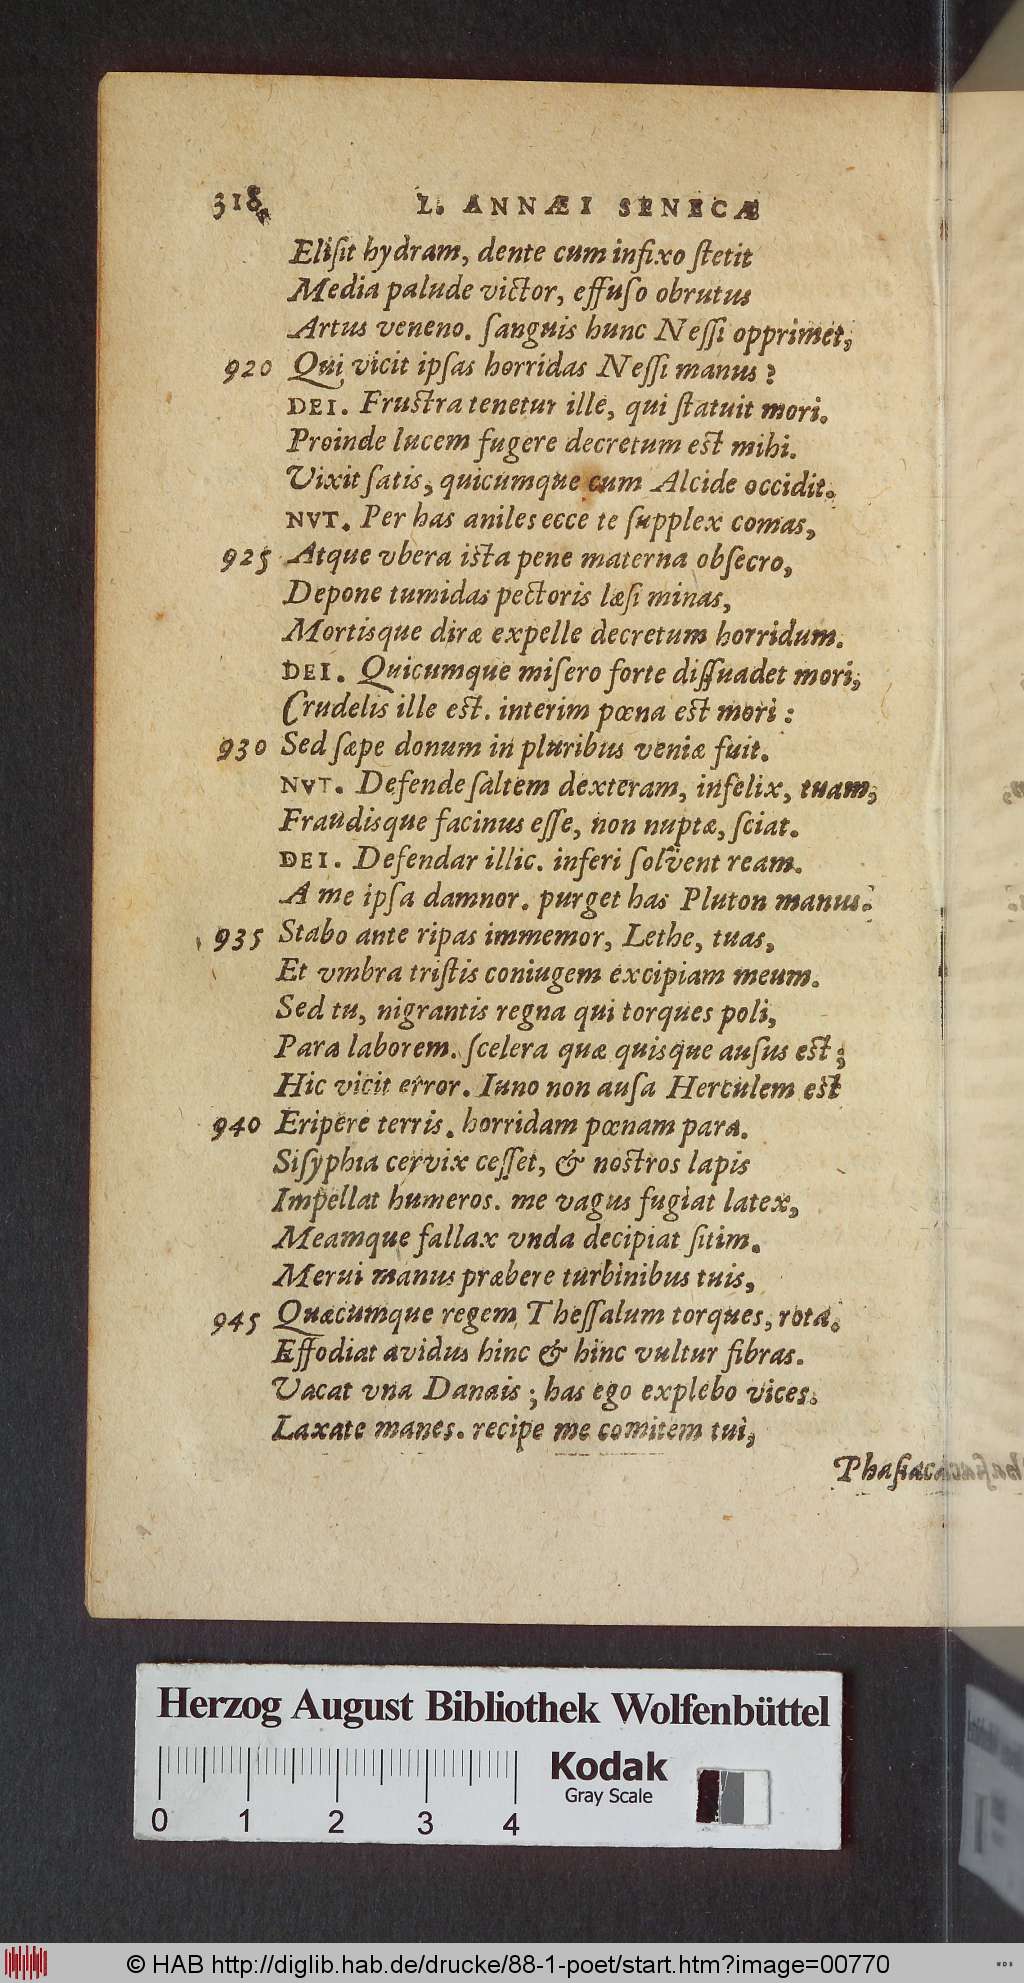 318 L. ANNÆI SENECÆ
Eliſit hydram, dente cum infixo ſtetit
Media palude victor, effuſo obrutus
Artus veneno. ſanguis hunc Neſſi opprimet,
920 Qui vicit ipſas horridas Neſſi manus?
DEI. Fruſtra tenetur ille, qui ſtatuit mori.
Proinde lucem fugere decretum eſt mihi.
Vixit ſatis, quicumque cum Alcide occidit.
NVT. Per has aniles ecce te ſupplex comas,
925 Atque vbera iſta pene materna obſecro,
Depone tumidas pectoris læſi minas,
Mortisque diræ expelle decretum horridum.
DEI. Quicumque miſero forte diſſuadet mori,
Crudelis ille eſt. interim pœna eſt mori:
930 Sed ſæpe donum in pluribus veniæ fuit.
NVT. Defende ſaltem dexteram, infelix, tuam,
Fraudisque facinus eſſe, non nuptæ, ſciat.
DEI. Defendar illic. inferi ſolvent ream.
A me ipſa damnor. purget has Pluton manus.
935 Stabo ante ripas immemor, Lethe, tuas,
Et vmbra triſtis coniugem excipiam meum.
Sed tu, nigrantis regna qui torques poli,
Para laborem. ſcelera quæ quisque auſus eſt;
Hic vicit error. Iuno non auſa Herculem eſt
940 Eripere terris. horridam pœnam para.
Siſyphia cervix ceſſet, & noſtros lapis
Impellat humeros. me vagus fugiat latex,
Meamque fallax vnda decipiat ſitim.
Merui manus præbere turbinibus tuis,
945 Quæcumque regem Theſſalum torques, rota.
Effodiat avidus hinc & hinc vultur fibras.
Vacat vna Danais; has ego explebo vices.
Laxate manes. recipe me comitem tui,
Phaſiaca
Herzog August Bibliothek Wolfenbüttel
Kodak
Gray Scale
0 1 2 3 4
© HAB http://diglib.hab.de/drucke/88-1-poet/start.htm?image=00770